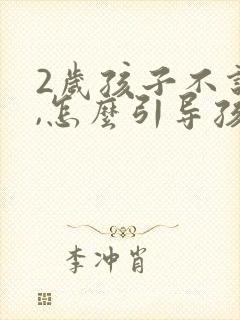 2歲孩子不
,怎麽引导孩
李冲肖